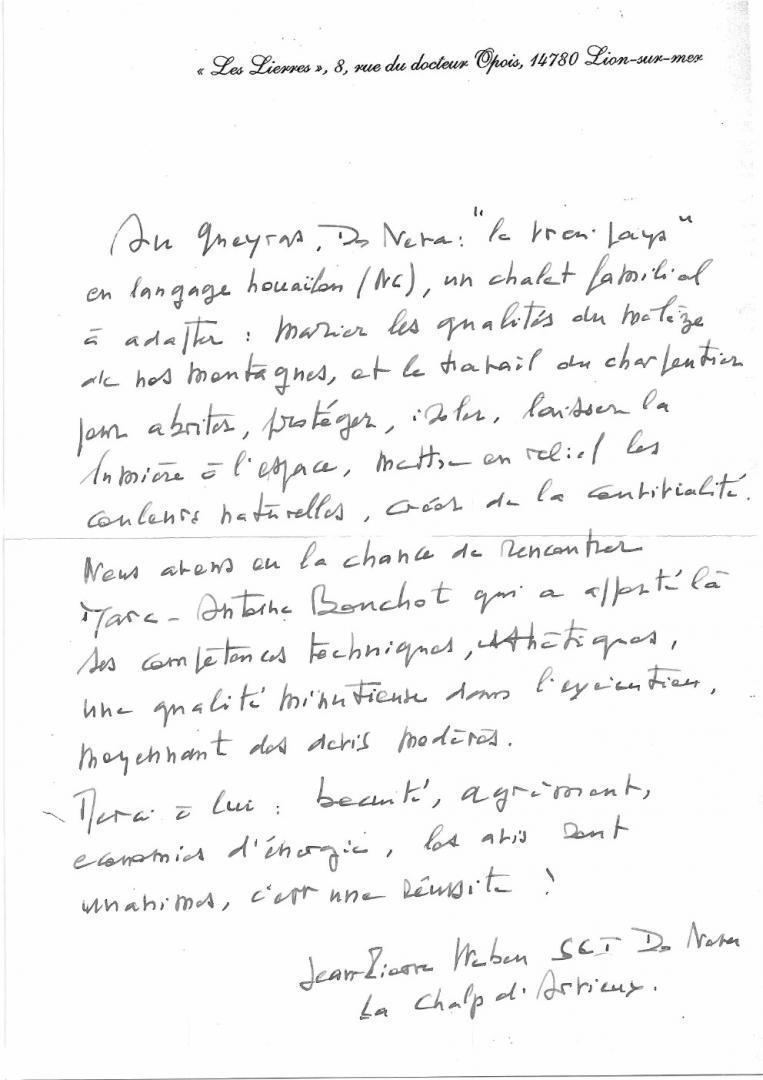 « Les Lierres », 8, rue du docteur Opois, 14780 Lion-sur-mer
Au Queyras, Do Neva : "le vrai pays"
en langage houaïlou (NC), un chalet familial
à adapter : marier les qualités du mélèze
de nos montagnes, et le travail du charpentier
pour abriter, protéger, isoler, laisser la
lumière à l'espace, mettre en relief les
couleurs naturelles, créer de la convivialité.
Nous avons eu la chance de rencontrer
Marc-Antoine Bonchot qui a apporté là
ses compétences techniques, esthétiques,
une qualité minutieuse dans l'exécution,
moyennant des devis modérés.
Merci à lui : beauté, agrément,
economies d'énergie, les avis sont
unanimes, c'est une réussite !
Jean-Pierre SCI Do Neva
La Chalp d'Arvieux.